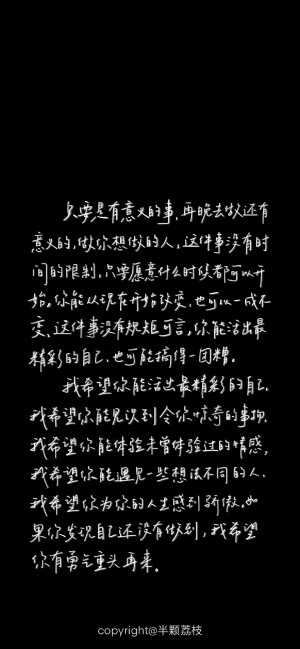 只要是有意义的事,再晚去做还有
意义的,做你想做的人,这件事没有时
间的限制,只要愿意什么时候都可以开
始。你能从现在开始改变,也可以一成不
变、这件事没有规矩可言,你能活出最
精彩的自己、也可能搞得一团糟。
我希望你能活出最精彩的自己、
我希望你能见识到令你惊奇的事物、
我希望你能体验未曾体验过的情感,
我希望你能遇见一些想法不同的人、
我希望你为你的人生感到骄傲。如
果你发现自己还没有做到,我希望
你有勇气重头再来。
copyright@半颗荔枝